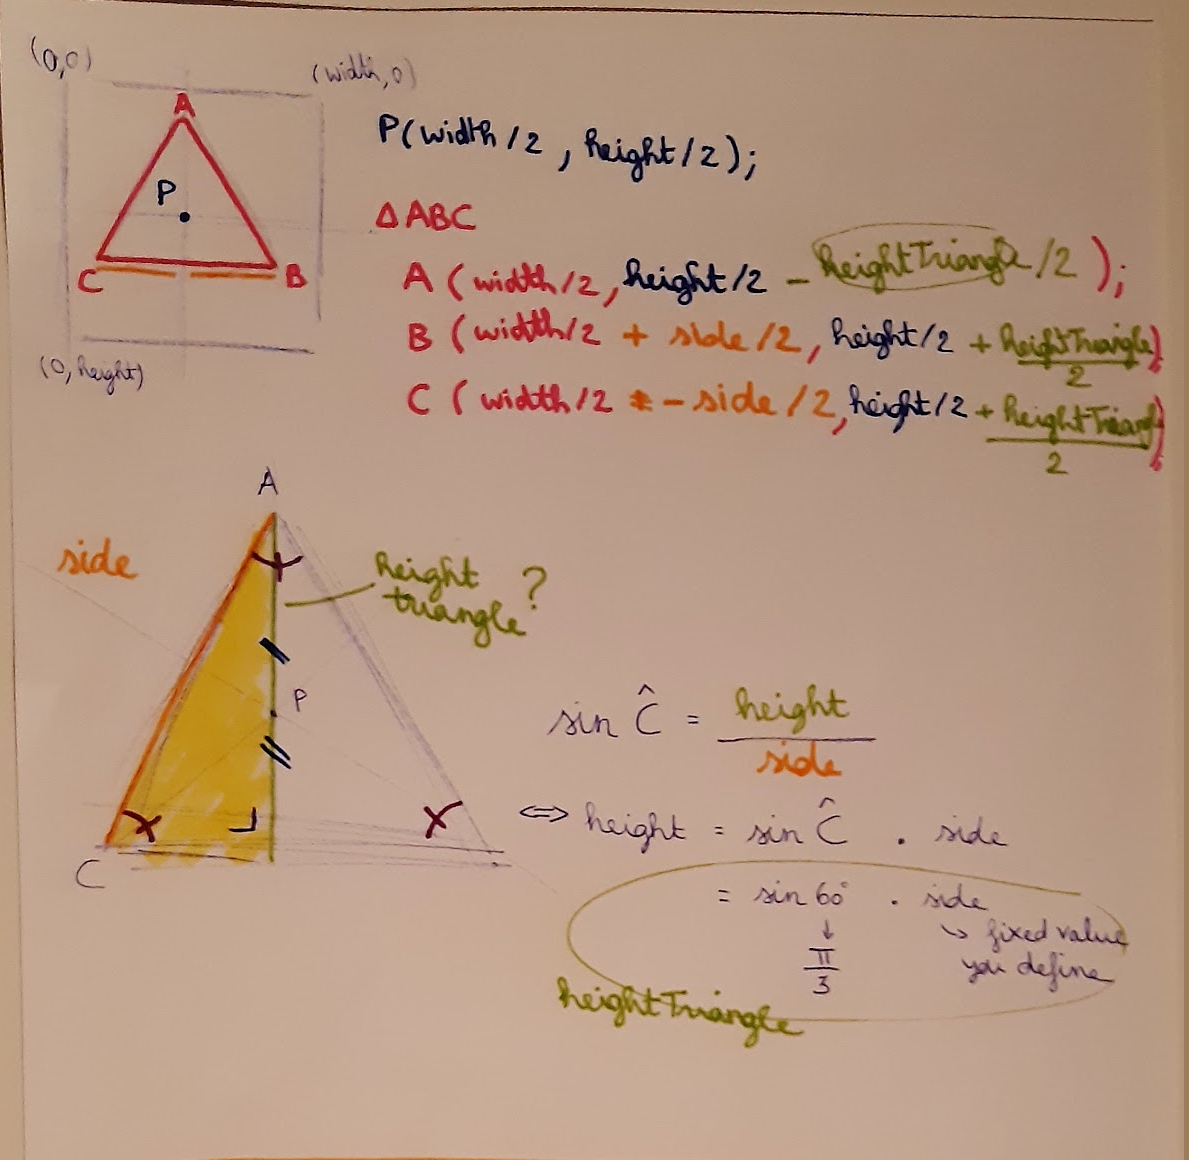 (0,0)
(width,0)
A
P
C
B
(0,height)
P(width/2, height/2);
△ABC
A (width/2, height/2 - heightTriangle/2);
B (width/2 + side/2, height/2 + heightTriangle/2)
C (width/2 - side/2, height/2 + heightTriangl/2)
A
side
height
triangle ?
P
C
sin Ĉ = height/side
⇔ height = sin Ĉ . side
= sin 60° . side
↓ π/3
↳ fixed value
you define
heightTriangle